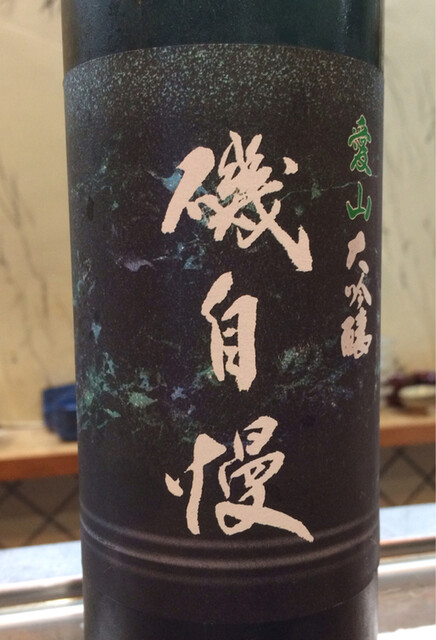 愛山大吟醸
磯自慢